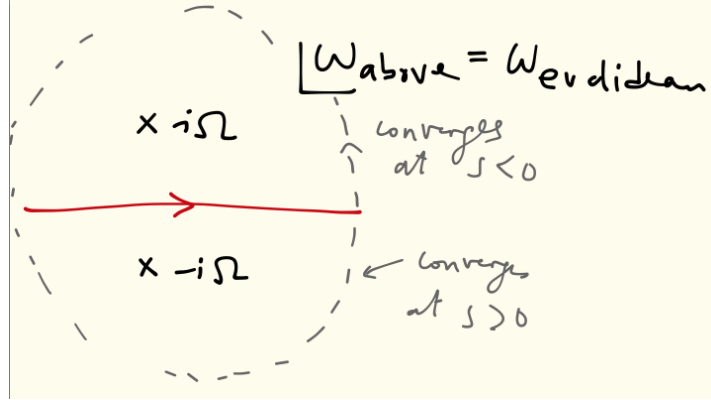 ω above = ω euclidean
× iΩ
converges
at s < 0
× -iΩ
converges
at s > 0